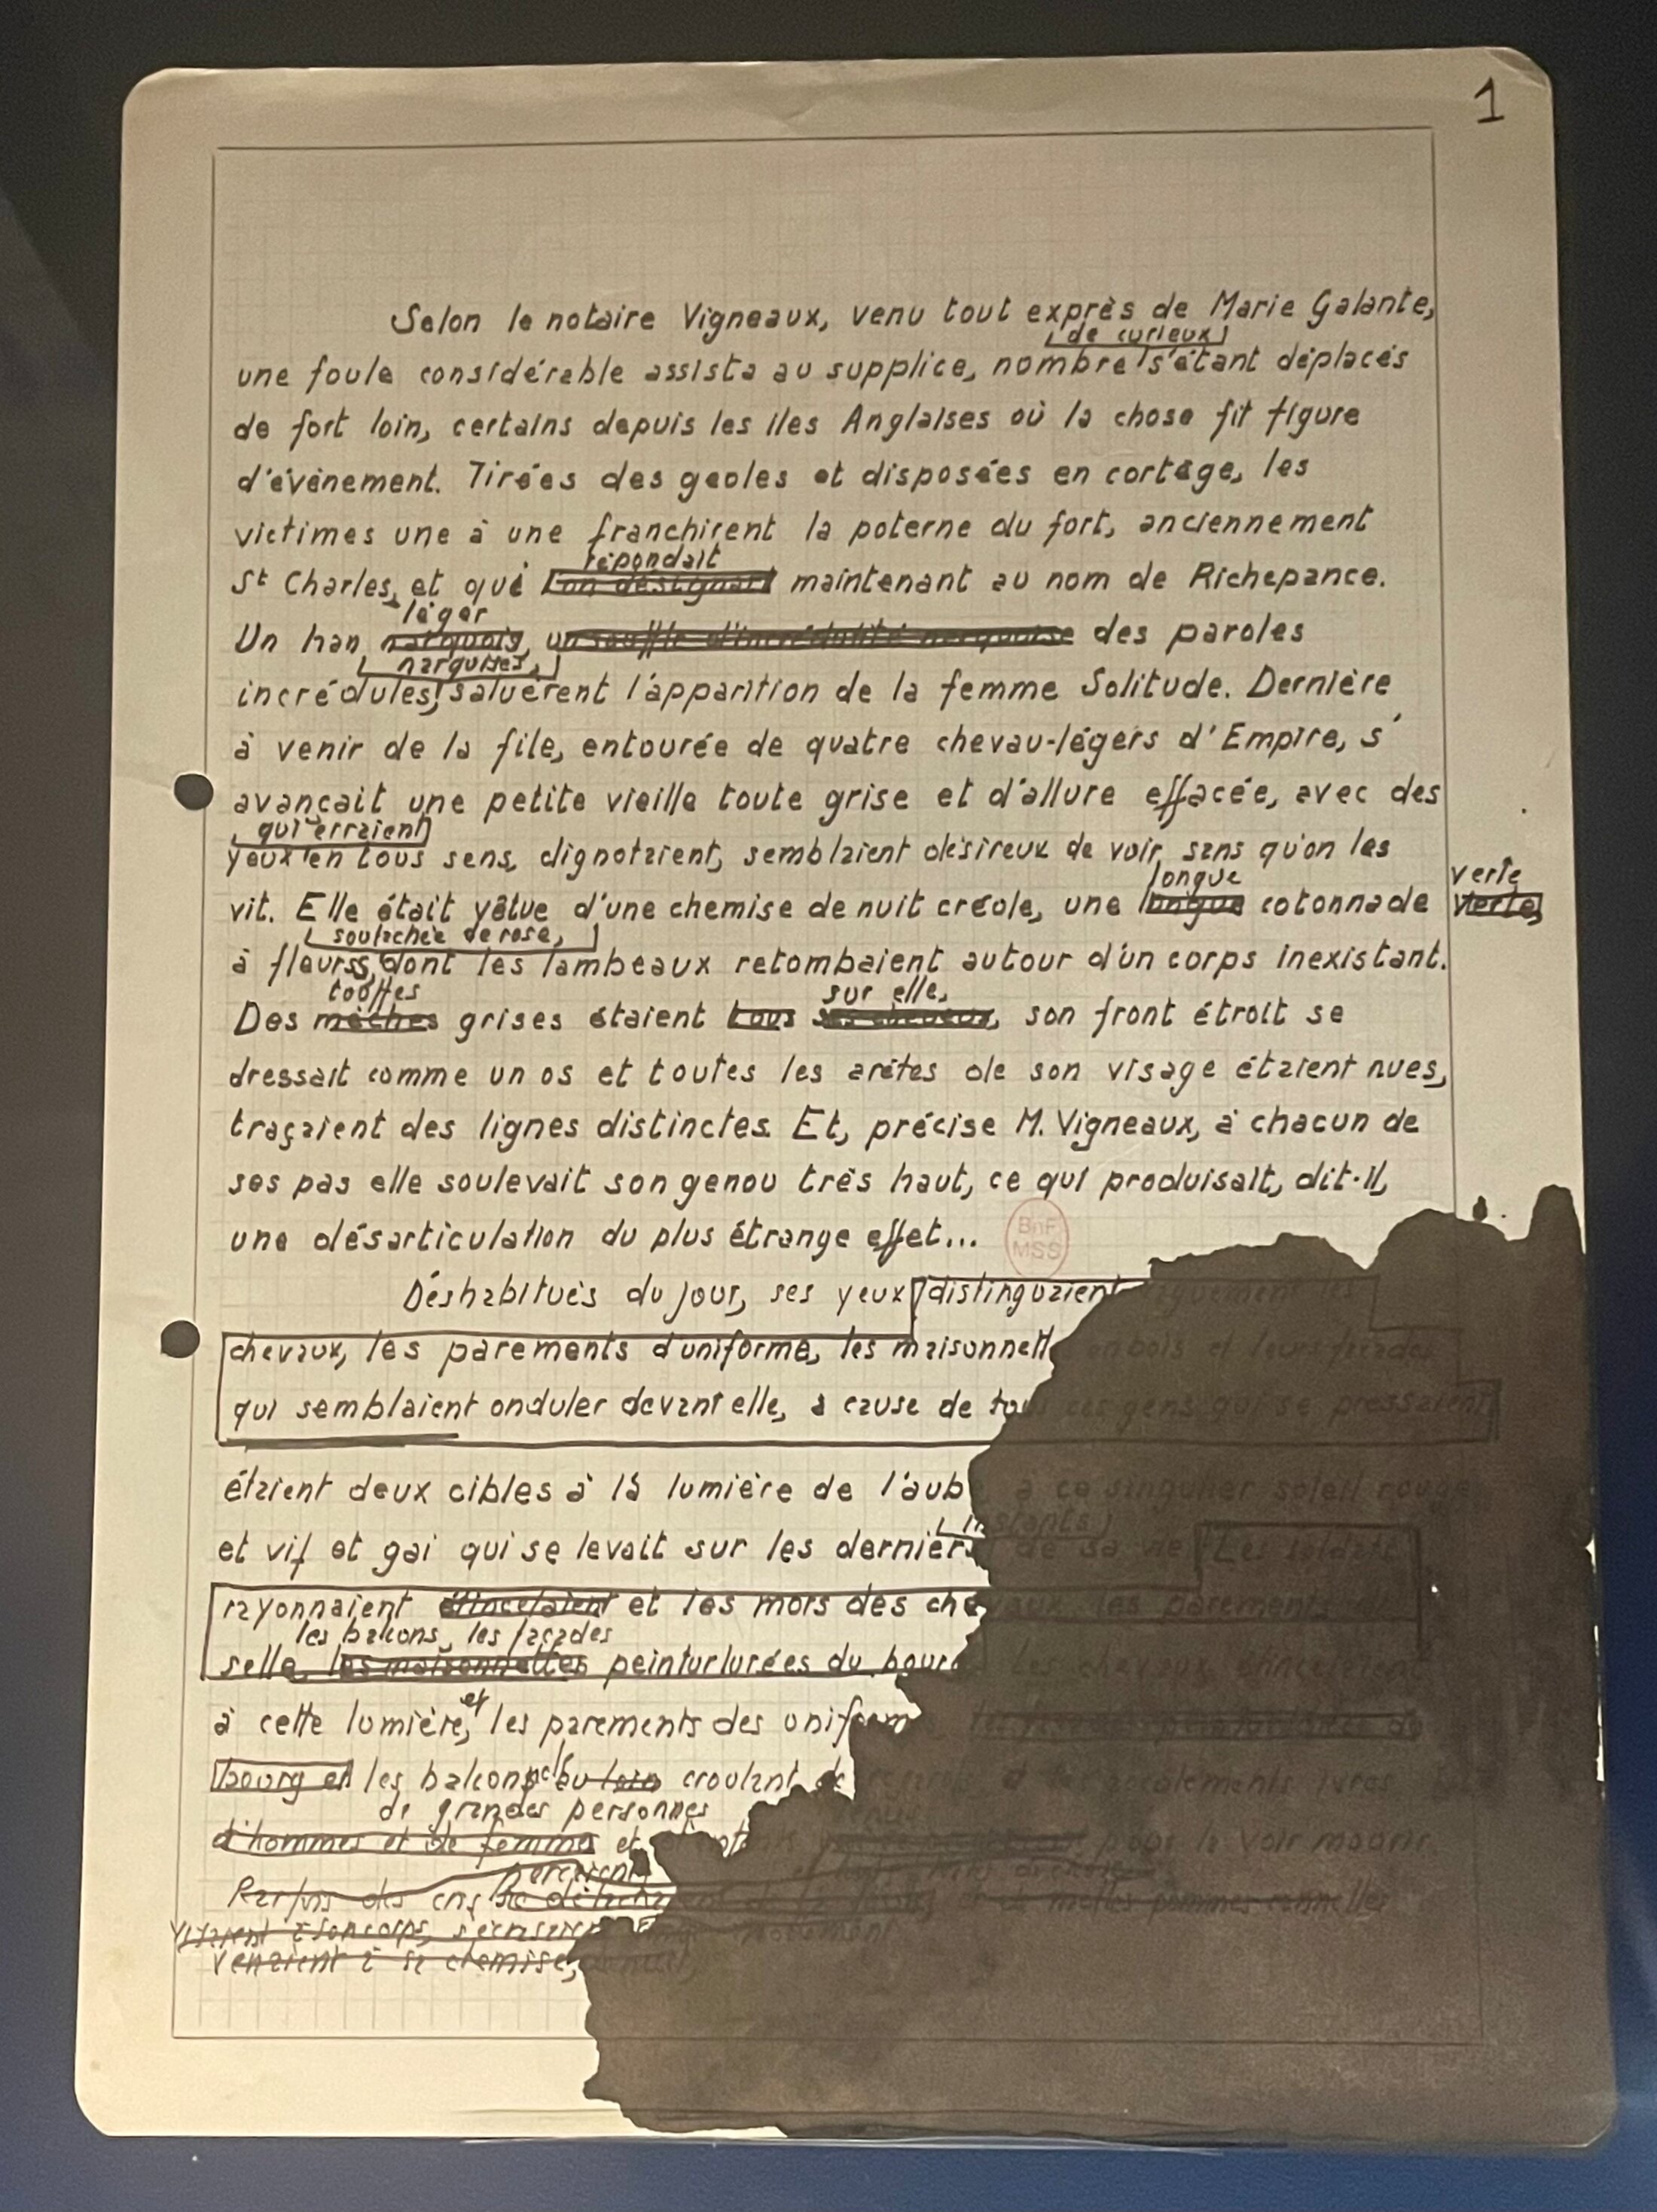 1
Selon le notaire Vigneaux, venu tout exprès de Marie Galante,
de curieux
une foule considérable assista au supplice, nombre s'étant déplacés
de fort loin, certains depuis les iles Anglaises où la chose fit figure
d'évènement. Tirées des geoles et disposées en cortège, les
victimes une à une franchirent la poterne du fort, anciennement
répondait
St Charles, et qui l'on désignait maintenant au nom de Richepance.
léger
Un han narquois, un souffle d'incrédulité narquoise des paroles
narquises,
incrédules, saluèrent l'apparition de la femme Solitude. Dernière
à venir de la file, entourée de quatre chevau-légers d'Empire, s'
avançait une petite vieille toute grise et d'allure effacée, avec des
qui erraient
yeux en tous sens, clignotaient, semblaient désireux de voir sans qu'on les
longue verte
vit. Elle était vêtue d'une chemise de nuit créole, une longue cotonnade verte,
soutachée de rose,
à fleurs, dont les lambeaux retombaient autour d'un corps inexistant.
touffes sur elle,
Des mèches grises étaient tous ses cheveux, son front étroit se
dressait comme un os et toutes les arêtes de son visage étaient nues,
traçaient des lignes distinctes. Et, précise M. Vigneaux, à chacun de
ses pas elle soulevait son genou très haut, ce qui produisait, dit-il,
une désarticulation du plus étrange effet...
BnF
MSS
Déshabitués du jour, ses yeux distinguaient vaguement les
chevaux, les parements d'uniforme, les maisonnettes en bois et leurs façades
qui semblaient onduler devant elle, à cause de tous ces gens qui se pressaient
étaient deux cibles à la lumière de l'aube à ce singulier soleil rouge
instants
et vif et gai qui se levait sur les derniers de sa vie Les soldats
rayonnaient étincelaient et les mors des chevaux les parements
les balcons, les façades
selle, les maisonnettes peinturlurées du bourg Les chevaux étincelaient
et
à cette lumière, les parements des uniformes
bourg et les balcons au loin croulant de
de grandes personnes
d'hommes et de femmes et pour la voir mourir.
perçaient
Parfois des cris se détachaient de molles pommes cannelles
venaient à son corps, s'écrasaient
venaient à sa chemise,